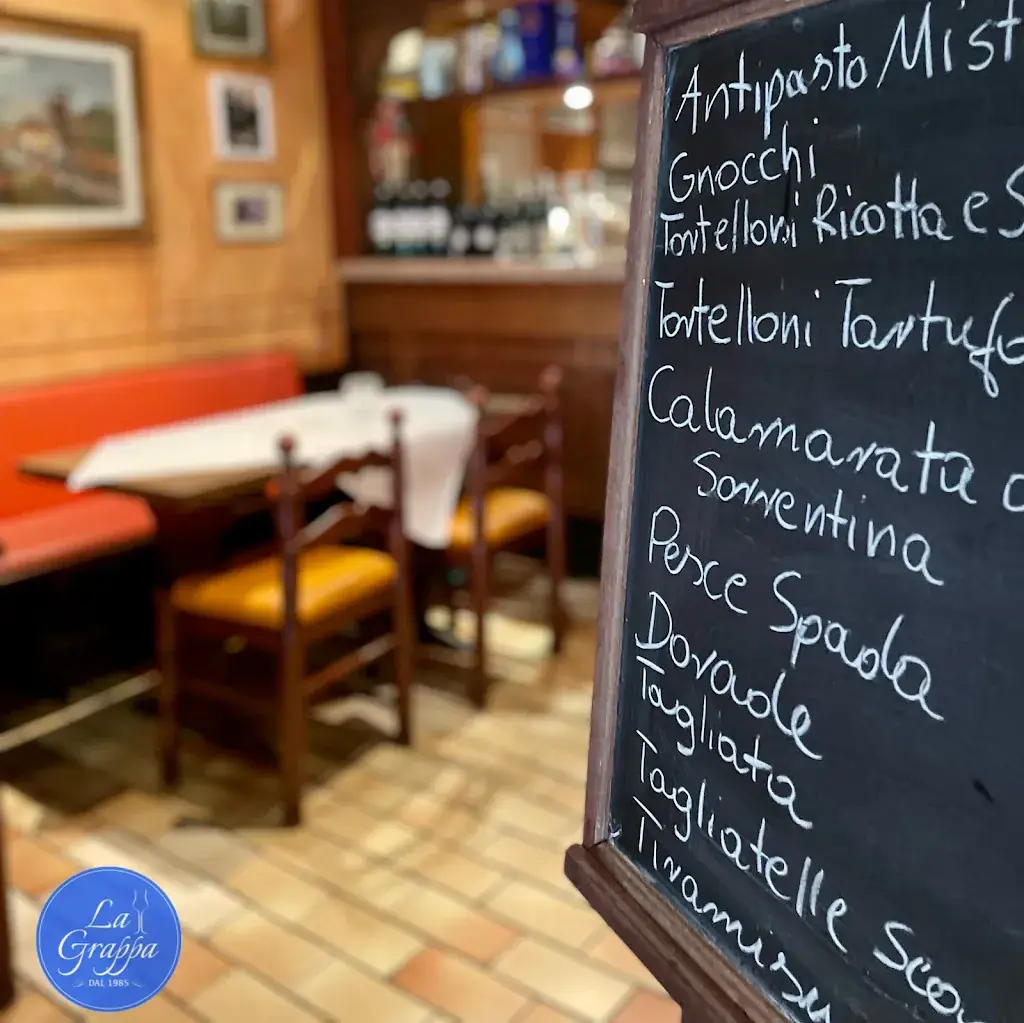 Antipasto Mist
Gnocchi
Tortelloni Ricotta e S
Tortelloni Tartufo
Calamarata
Sorrentina
Pesce Spada
Dorade
Tagliata
Tagliatelle Sco
Tiramisu
La
Grappa
DAL 1985